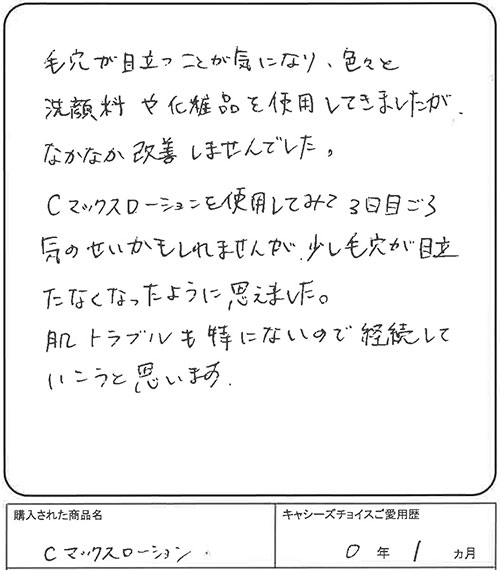 毛穴が目立つことが気になり、色々と
洗顔料や化粧品を使用してきましたが、
なかなか改善しませんでした。
Cマックスローションを使用してみて3日目ごろ
気のせいかもしれませんが、少し毛穴が目立
たなくなったように思えました。
肌トラブルも特にないので継続して
いこうと思います。
購入された商品名
キャシーズチョイスご愛用歴
Cマックスローション.
0年 1ヵ月